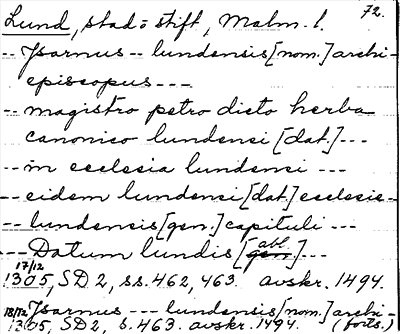 Lund, stad o stift, Malm. l. 72.
-- Jsarnus -- lundensis [nom.] archi-
episcopus ---
-- magistro petro dicto herba
canonico lundensi [dat.] ---
-- in ecclesia lundensi ---
-- eidem lundensi [dat] ecclesie -
-- lundensis [gen.] capituli ---
--- Datum lundis [abl.] ---
17/12
1305, SD 2, ss. 462, 463. avskr. 1494.
18/12 Jsarnus --- lundensis [nom.] archi-
1305, SD 2, s. 463. avskr. 1494. (forts.)